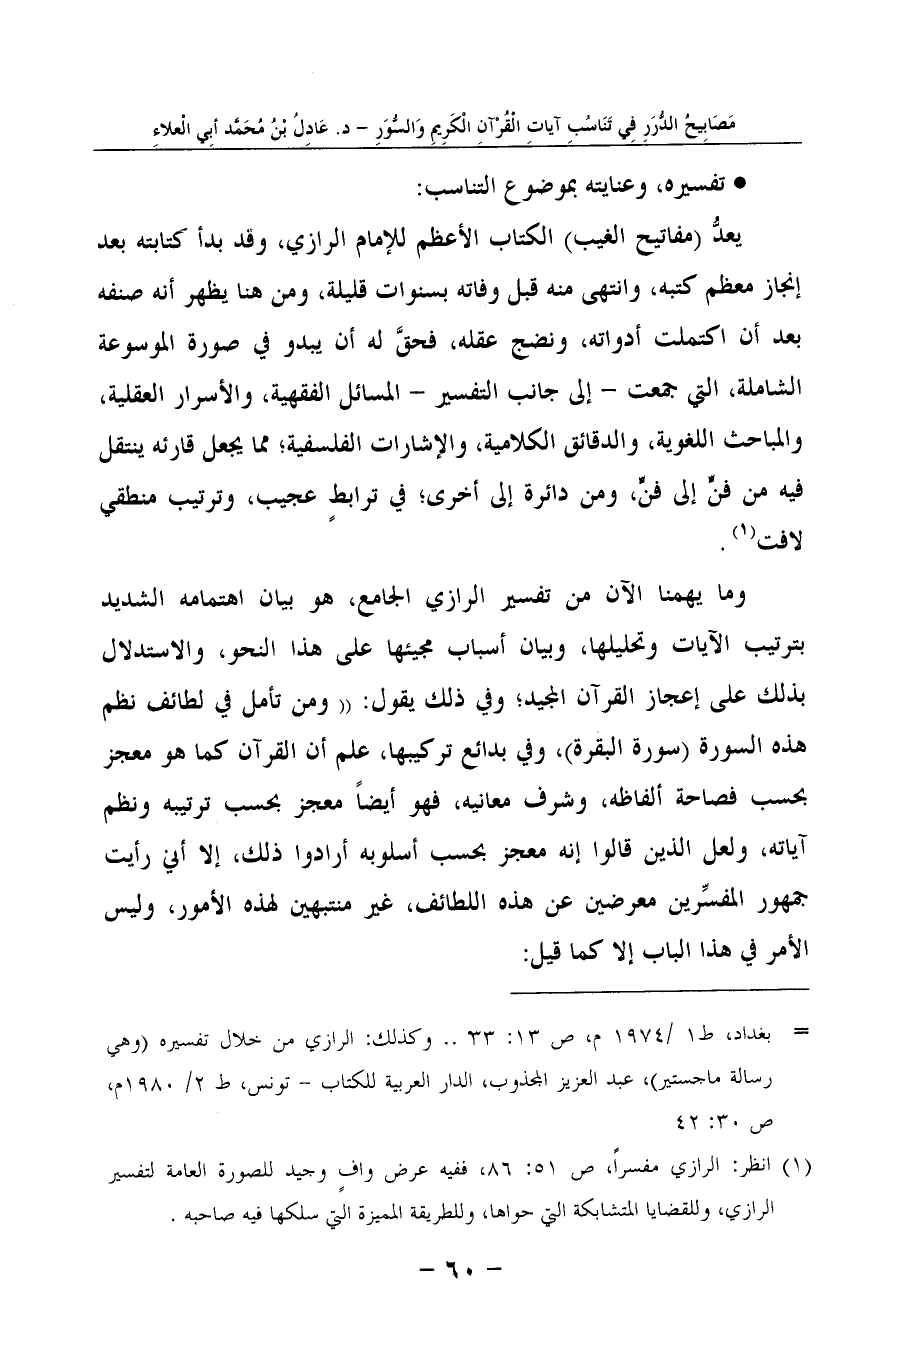 مَصَابِيحُ الدُّرَرِ فِي تَنَاسُبِ آيَاتِ الْقُرْآنِ الْكَرِيمِ وَالسُّوَرِ – د. عَادِلُ بْنُ مُحَمَّد أبي الْعلاءِ
● تفسيره، وعنايته بموضوع التناسب:
يعدُّ (مفاتيح الغيب) الكتاب الأعظم للإمام الرازي، وقد بدأ كتابته بعد
إنجاز معظم كتبه، وانتهى منه قبل وفاته بسنوات قليلة، ومن هنا يظهر أنه صنفه
بعد أن اكتملت أدواته، ونضج عقله، فحقَّ له أن يبدو في صورة الموسوعة
الشاملة، التي جمعت – إلى جانب التفسير – المسائل الفقهية، والأسرار العقلية،
والمباحث اللغوية، والدقائق الكلامية، والإشارات الفلسفية؛ مما يجعل قارئه ينتقل
فيه من فنٍّ إلى فنٍّ، ومن دائرة إلى أخرى؛ في ترابطٍ عجيب، وترتيب منطقي
لافت(١) .
وما يهمنا الآن من تفسير الرازي الجامع، هو بيان اهتمامه الشديد
بترتيب الآيات وتحليلها، وبيان أسباب مجيئها على هذا النحو، والاستدلال
بذلك على إعجاز القرآن المجيد؛ وفي ذلك يقول: (( ومن تأمل في لطائف نظم
هذه السورة (سورة البقرة)، وفي بدائع تركيبها، علم أن القرآن كما هو معجز
بحسب فصاحة ألفاظه، وشرف معانيه، فهو أيضاً معجز بحسب ترتيبه ونظم
آياته، ولعل الذين قالوا إنه معجز بحسب أسلوبه أرادوا ذلك، إلا أني رأيت
جمهور المفسِّرين معرضين عن هذه اللطائف، غير منتبهين لهذه الأمور، وليس
الأمر في هذا الباب إلا كما قيل:
= بغداد، ط١ /١٩٧٤ م، ص ١٣: ٣٣ .. وكذلك: الرازي من خلال تفسيره (وهي
رسالة ماجستير)، عبد العزيز المجذوب، الدار العربية للكتاب – تونس، ط ٢/ ١٩٨٠م،
ص ٣٠: ٤٢
(١) انظر: الرازي مفسراً، ص ٥١: ٨٦، ففيه عرض وافٍ وجيد للصورة العامة لتفسير
الرازي، وللقضايا المتشابكة التي حواها، وللطريقة المميزة التي سلكها فيه صاحبه .
– ٦٠ –